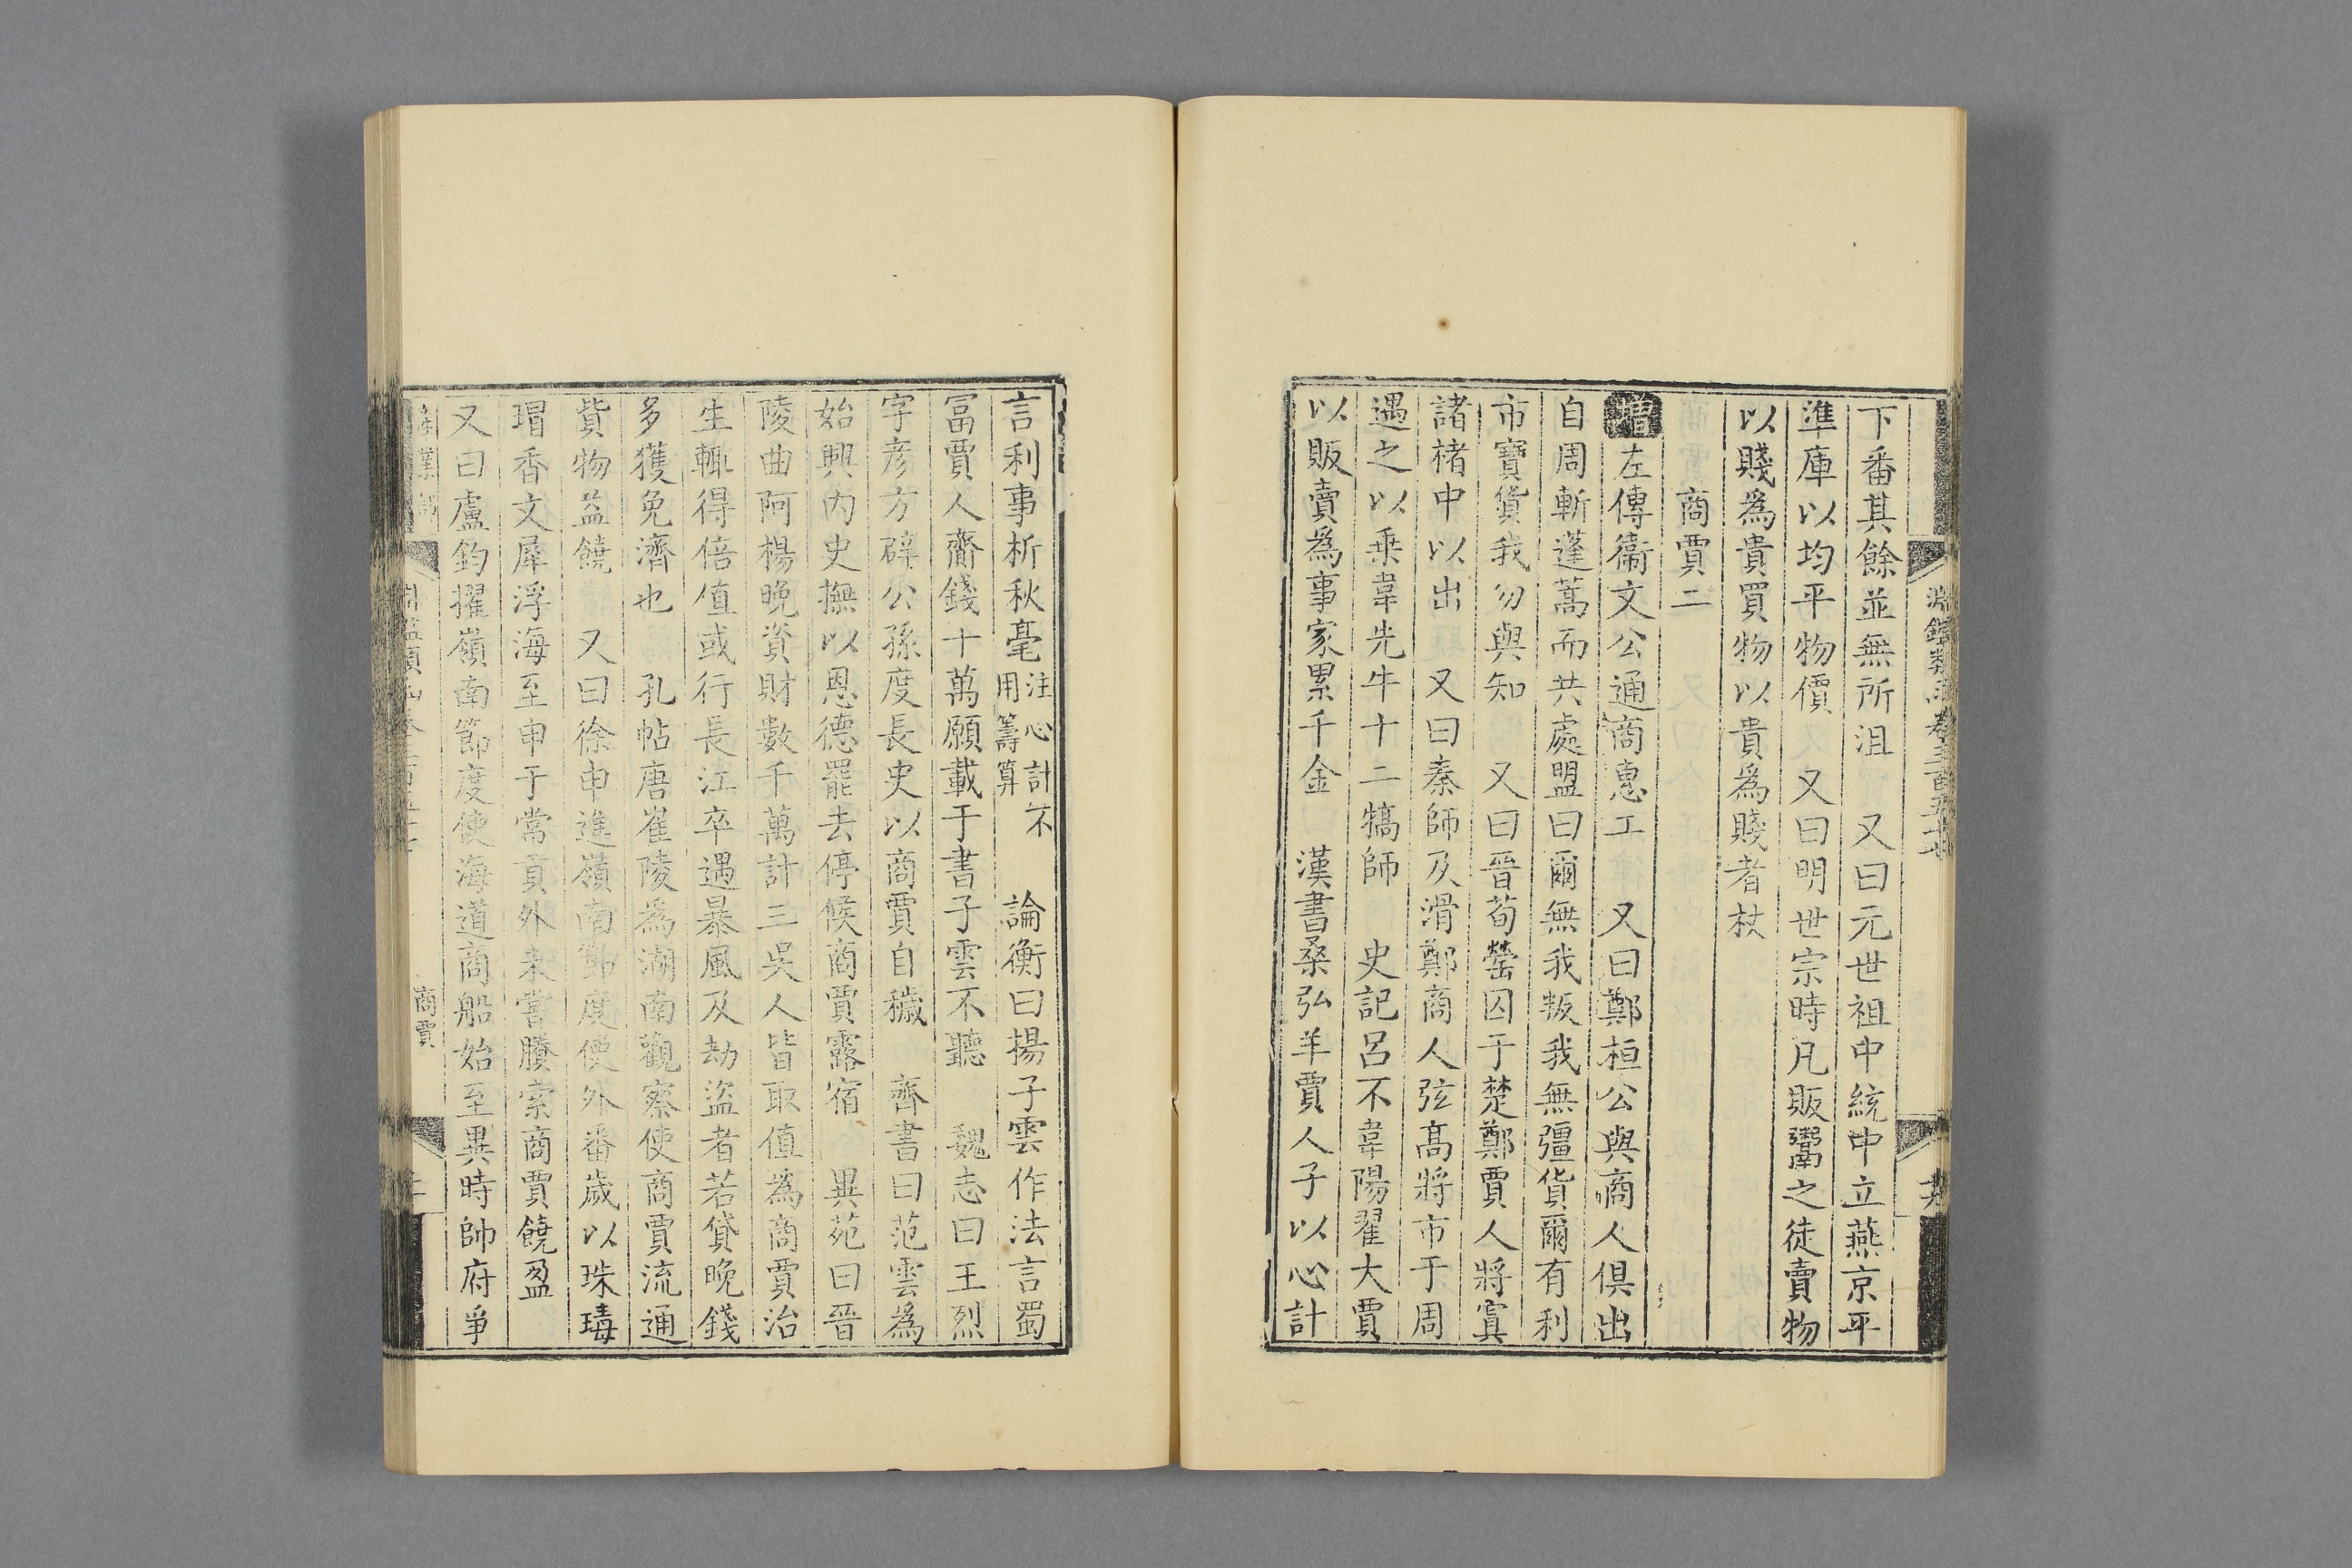 下番其餘並無所沮　又曰元世祖中統中立燕京平
準庫以均平物價　又曰明世宗時凡販鬻之徒賣物
以賤爲貴買物以貴爲賤者杖
商賈二
增左傳衞文公通商惠工　又曰鄭桓公與商人俱出
自周斬蓬蒿而共處盟曰爾無我叛我無彊貨爾有利
市寶貨我勿與知　又曰晉荀罃囚于楚鄭賈人將寘
諸楮中以出　又曰秦師及滑鄭商人弦高將市于周
遇之以乗韋先牛十二犒師　史記呂不韋陽翟大賈
以販賣爲事家累千金　漢書桑弘羊賈人子以心計
言利事析秋毫注心計不用籌算　論衡曰揚子雲作法言蜀
冨賈人齎錢十萬願載于書子雲不聽　魏志曰王烈
字彦方辟公孫度長史以商賈自穢　齊書曰范雲為
始興内史撫以恩德罷去停候商賈露宿　異苑曰晉
陵曲阿楊晚資財數千萬計三吳人皆取值為商賈治
生輒得倍值或行長江卒遇暴風及劫盜者若貸晚錢
多獲免濟也　孔帖唐崔陵為湖南觀察使商賈流通
貲物益饒　又曰徐申進嶺南節度使外番歲以珠瑇
瑁香文犀浮海至申于常貢外未嘗賸索商賈饒盈
又曰盧鈞擢嶺南節度使海道商船始至異時帥府爭
商賈